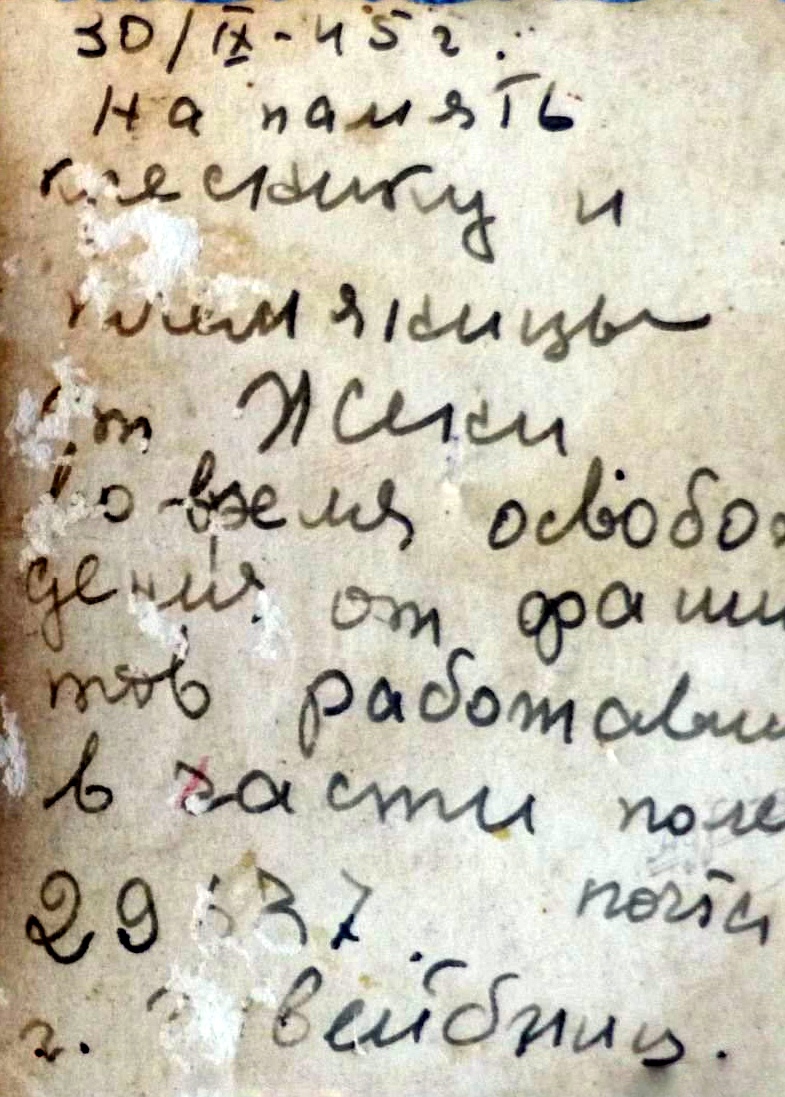 30/IX-45г.
На память
племнику и
племяницы
от Жени
Во время освобо
дения от фаши
тов работавш
в части поле
почты
г. Швейдниц.